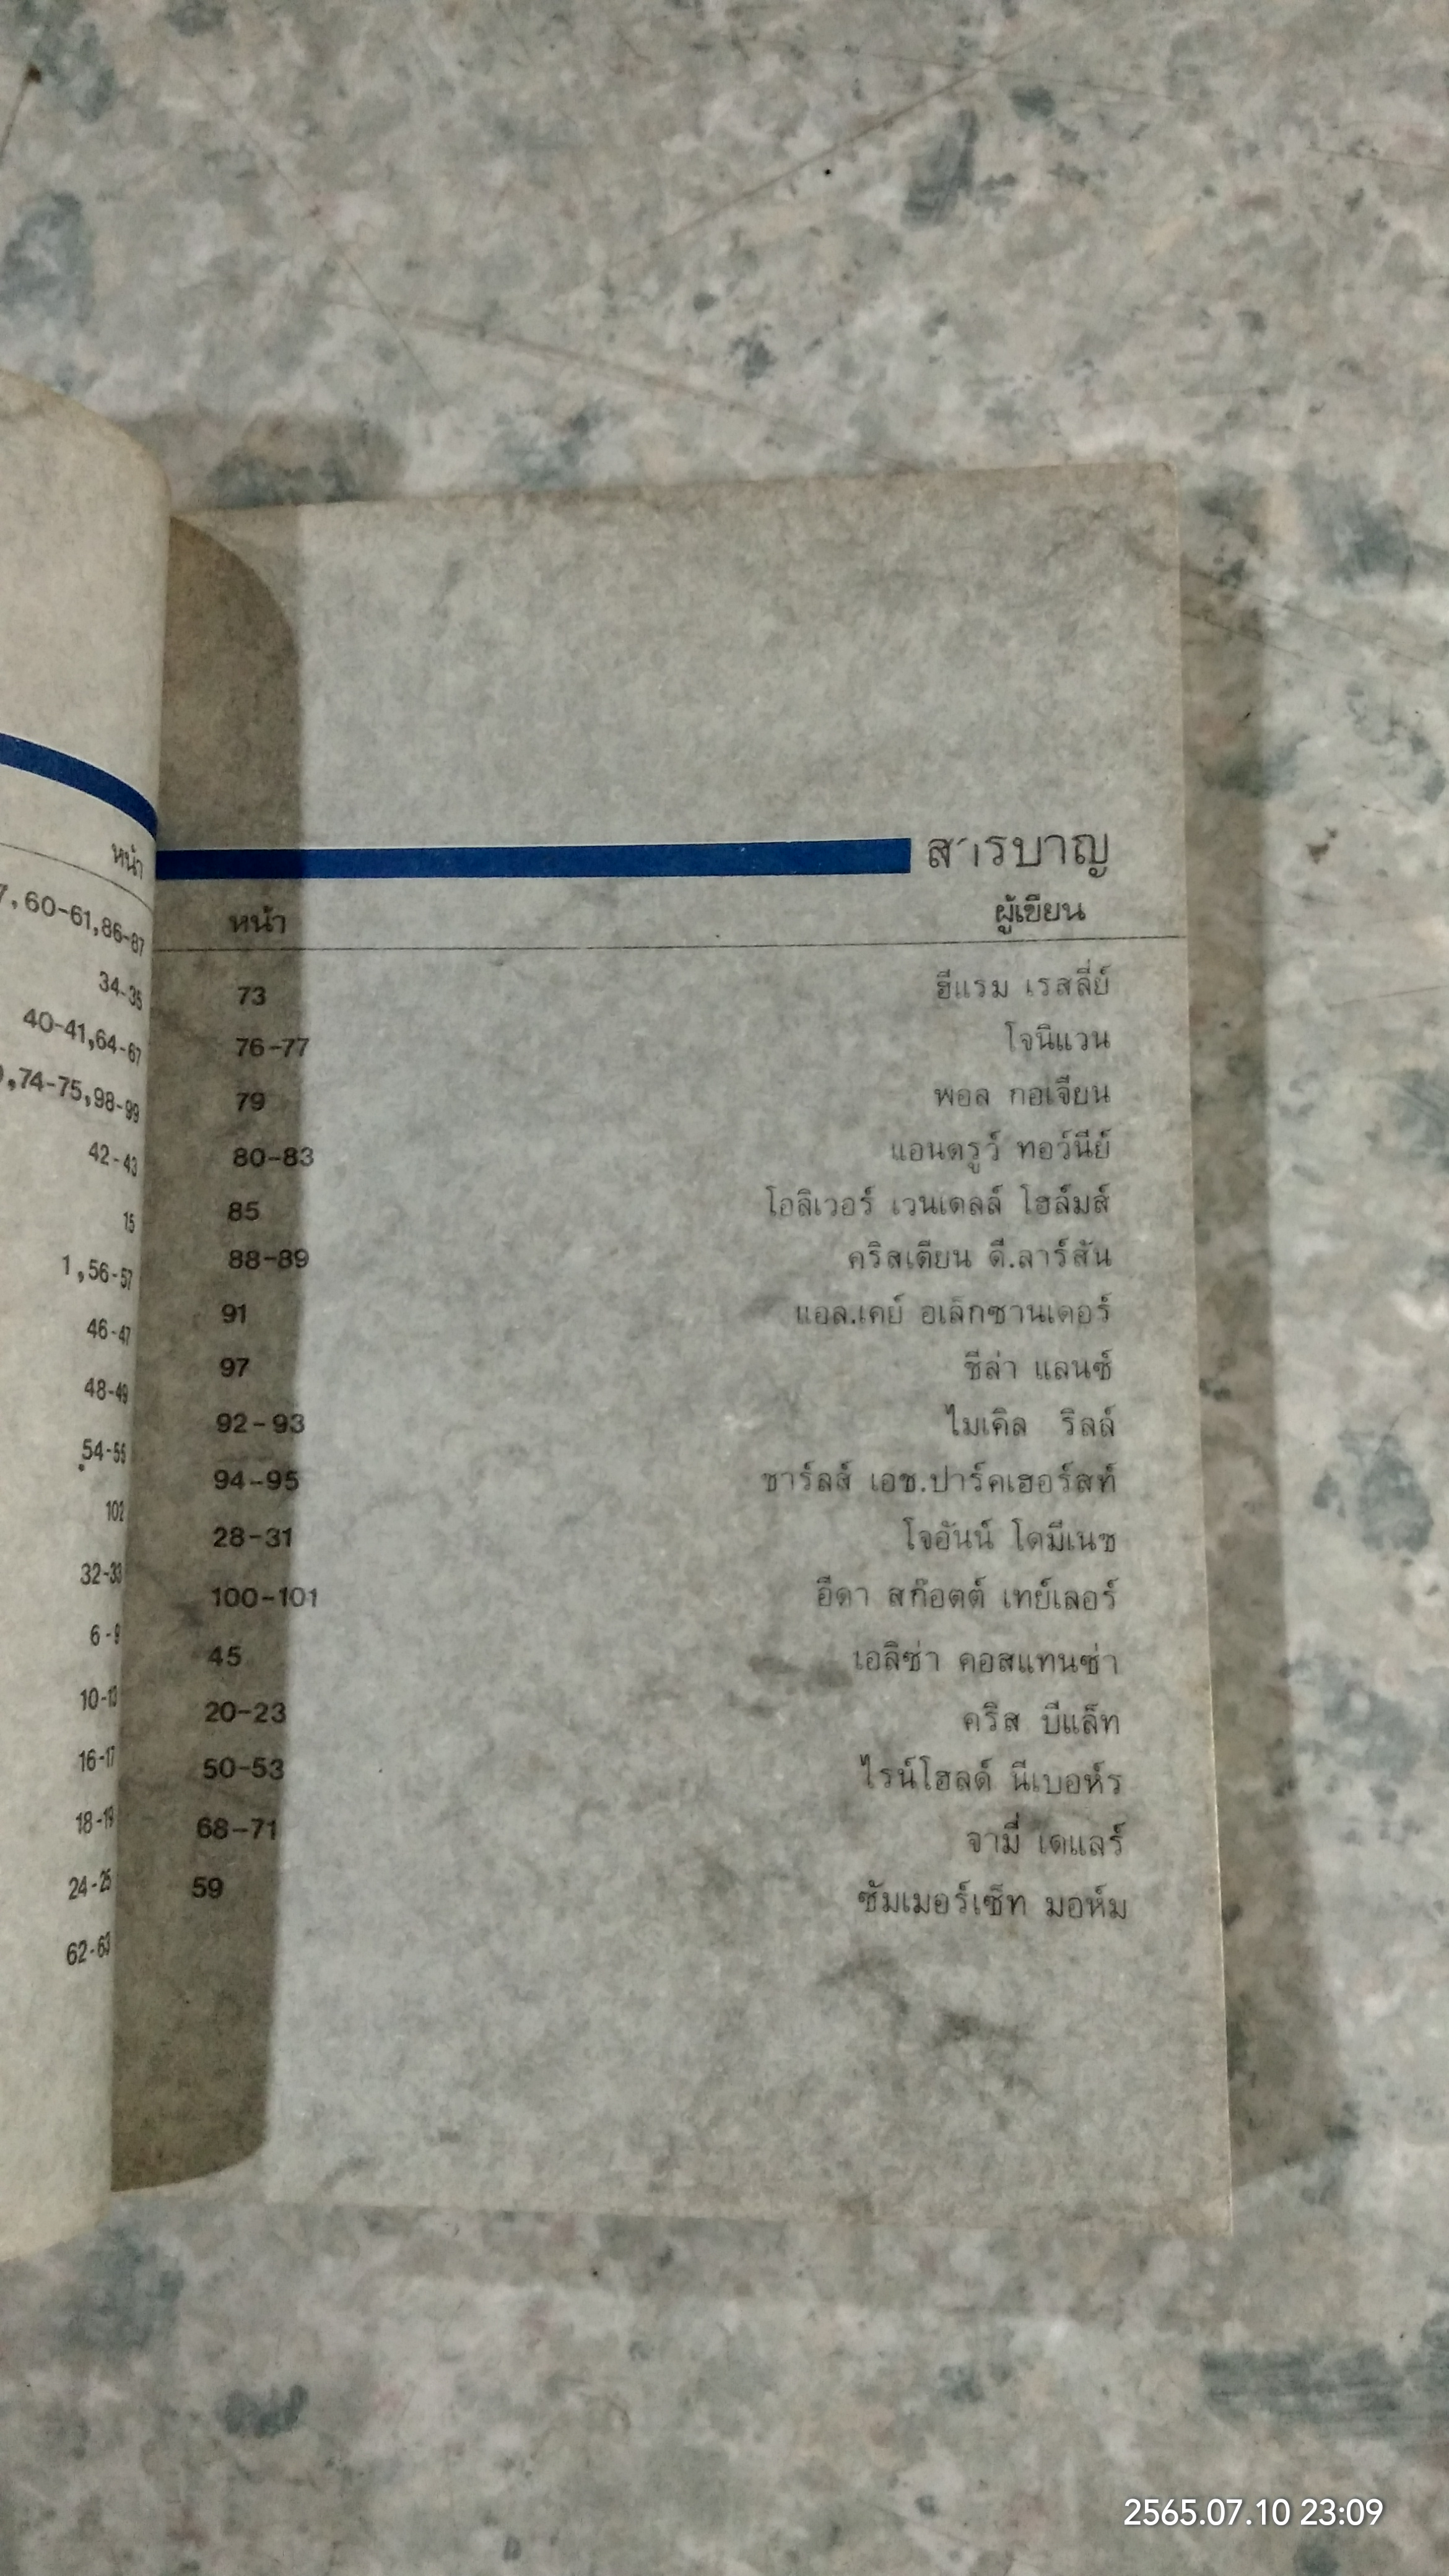 หน้า
7, 60-61,86-87
34-35
40-41,64-67
,74-75,98-99
42-43
15
1,56-57
46-47
48-49
54-55
102
32-33
6-9
10-13
16-17
18-19
24-25
62-63
สารบาญ
หน้า ผู้เขียน
73 ฮีแรม เรสลี่ย์
76-77 โจนิแวน
79 พอล กอเจียน
80-83 แอนดรูว์ ทอว์นีย์
85 โอลิเวอร์ เวนเดลล์ โฮล์มส์
88-89 คริสเตียน ดี.ลาร์สัน
91 แอล.เคย์ อเล็กซานเดอร์
97 ชีล่า แลนซ์
92-93 ไมเคิล ริลล์
94-95 ชาร์ลส์ เอช.ปาร์คเฮอร์สท์
28-31 โจอันน์ โดมีเนช
100-101 อีดา สก๊อตต์ เทย์เลอร์
45 เอลิซ่า คอสแทนซ่า
20-23 คริส บีแล็ท
50-53 ไรน์โฮลด์ นีเบอห์ร
68-71 จามี่ เดแลร์
59 ซัมเมอร์เซ็ท มอห์ม
2565.07.10 23:09